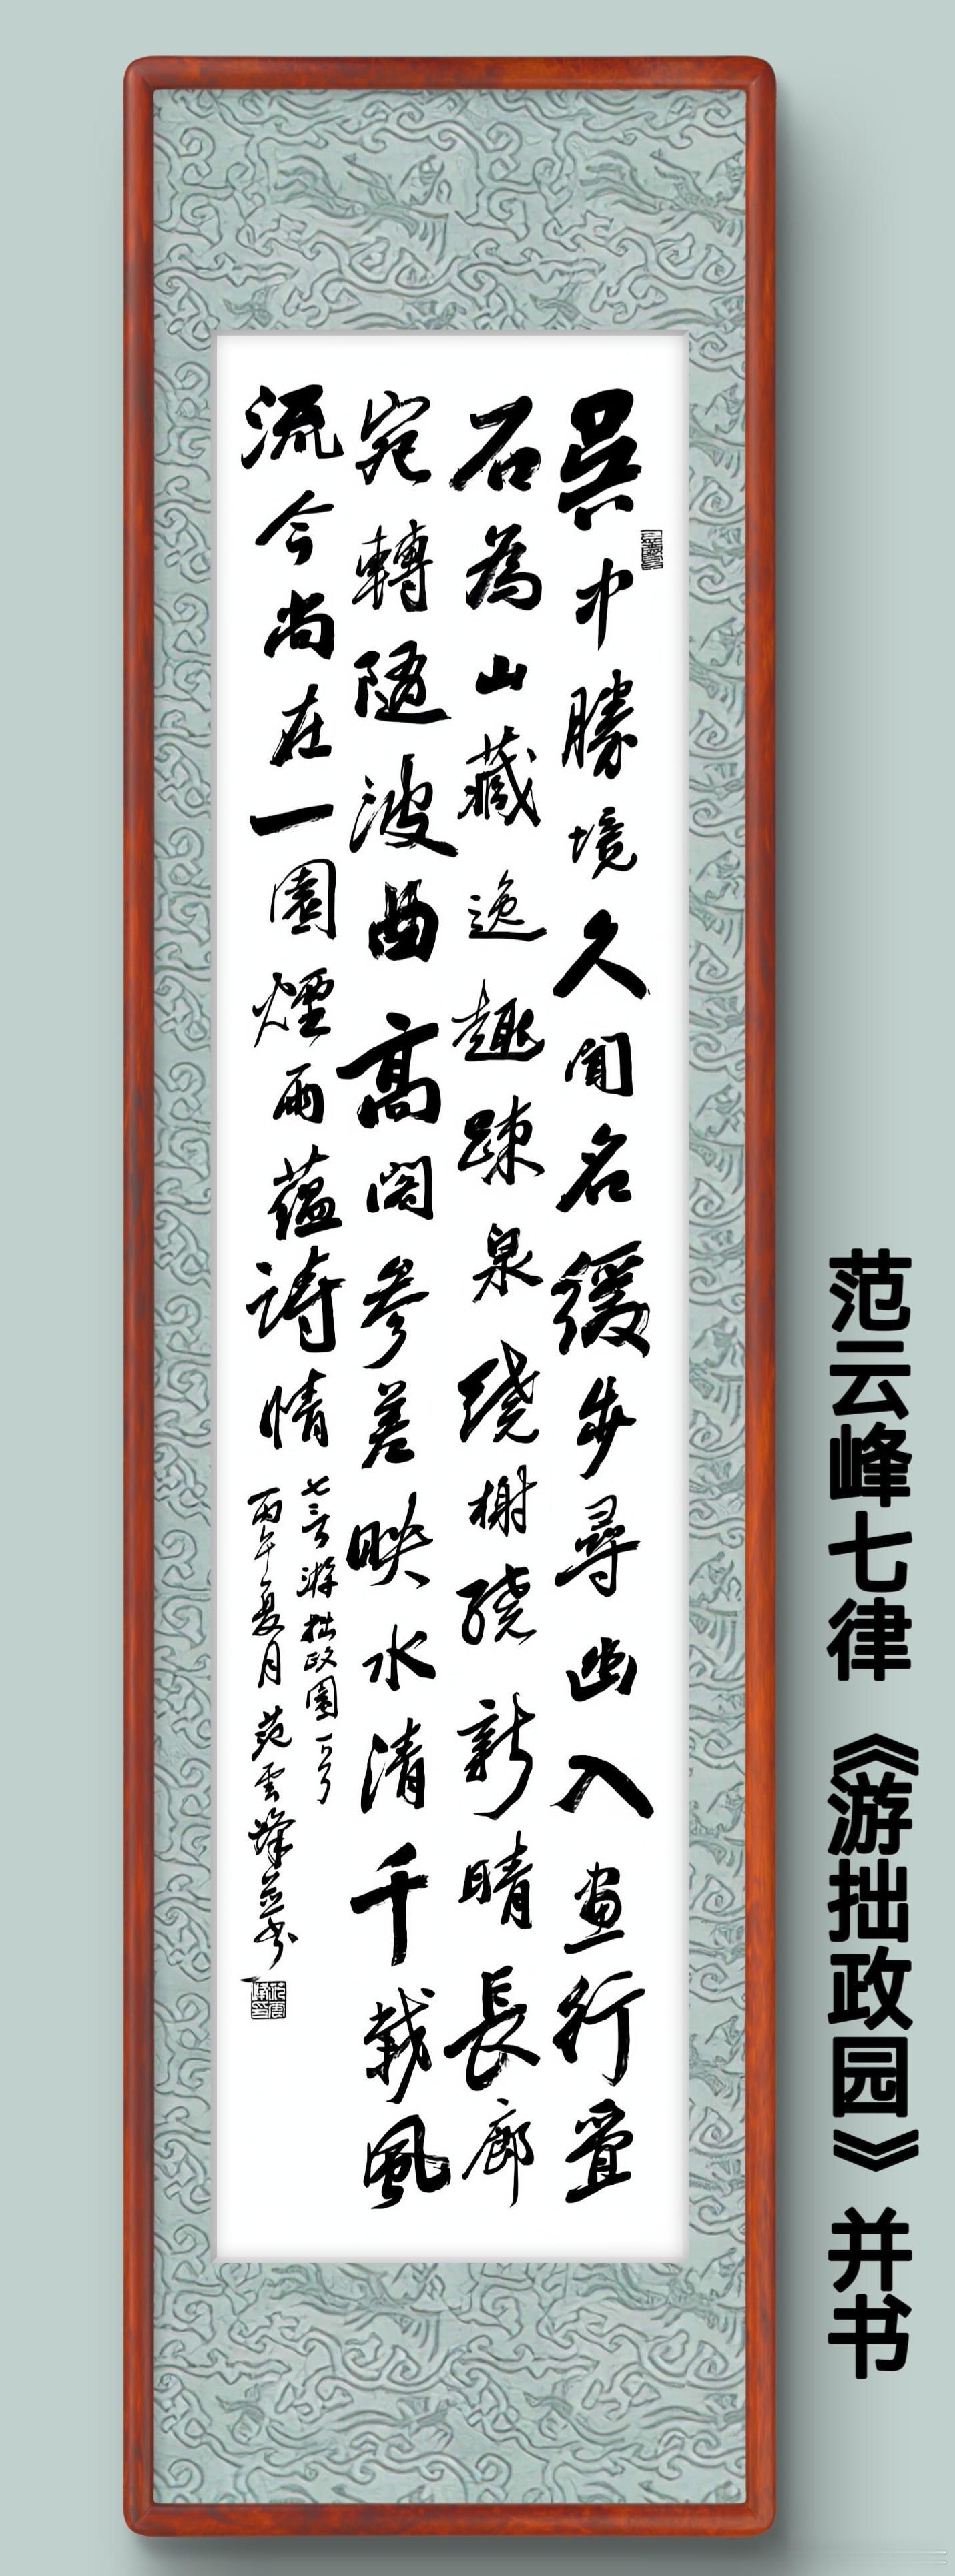 吳中勝境久聞名緩步尋幽入畫行疊
石為山藏逸趣踈泉繞榭繞新晴長廊
宛轉隨波曲高閣參差映水清千載風
流今尚在一園煙雨蘊詩情
七言游拙政園一首
丙午夏月范雲峰并书
范云峰七律《游拙政园》并书